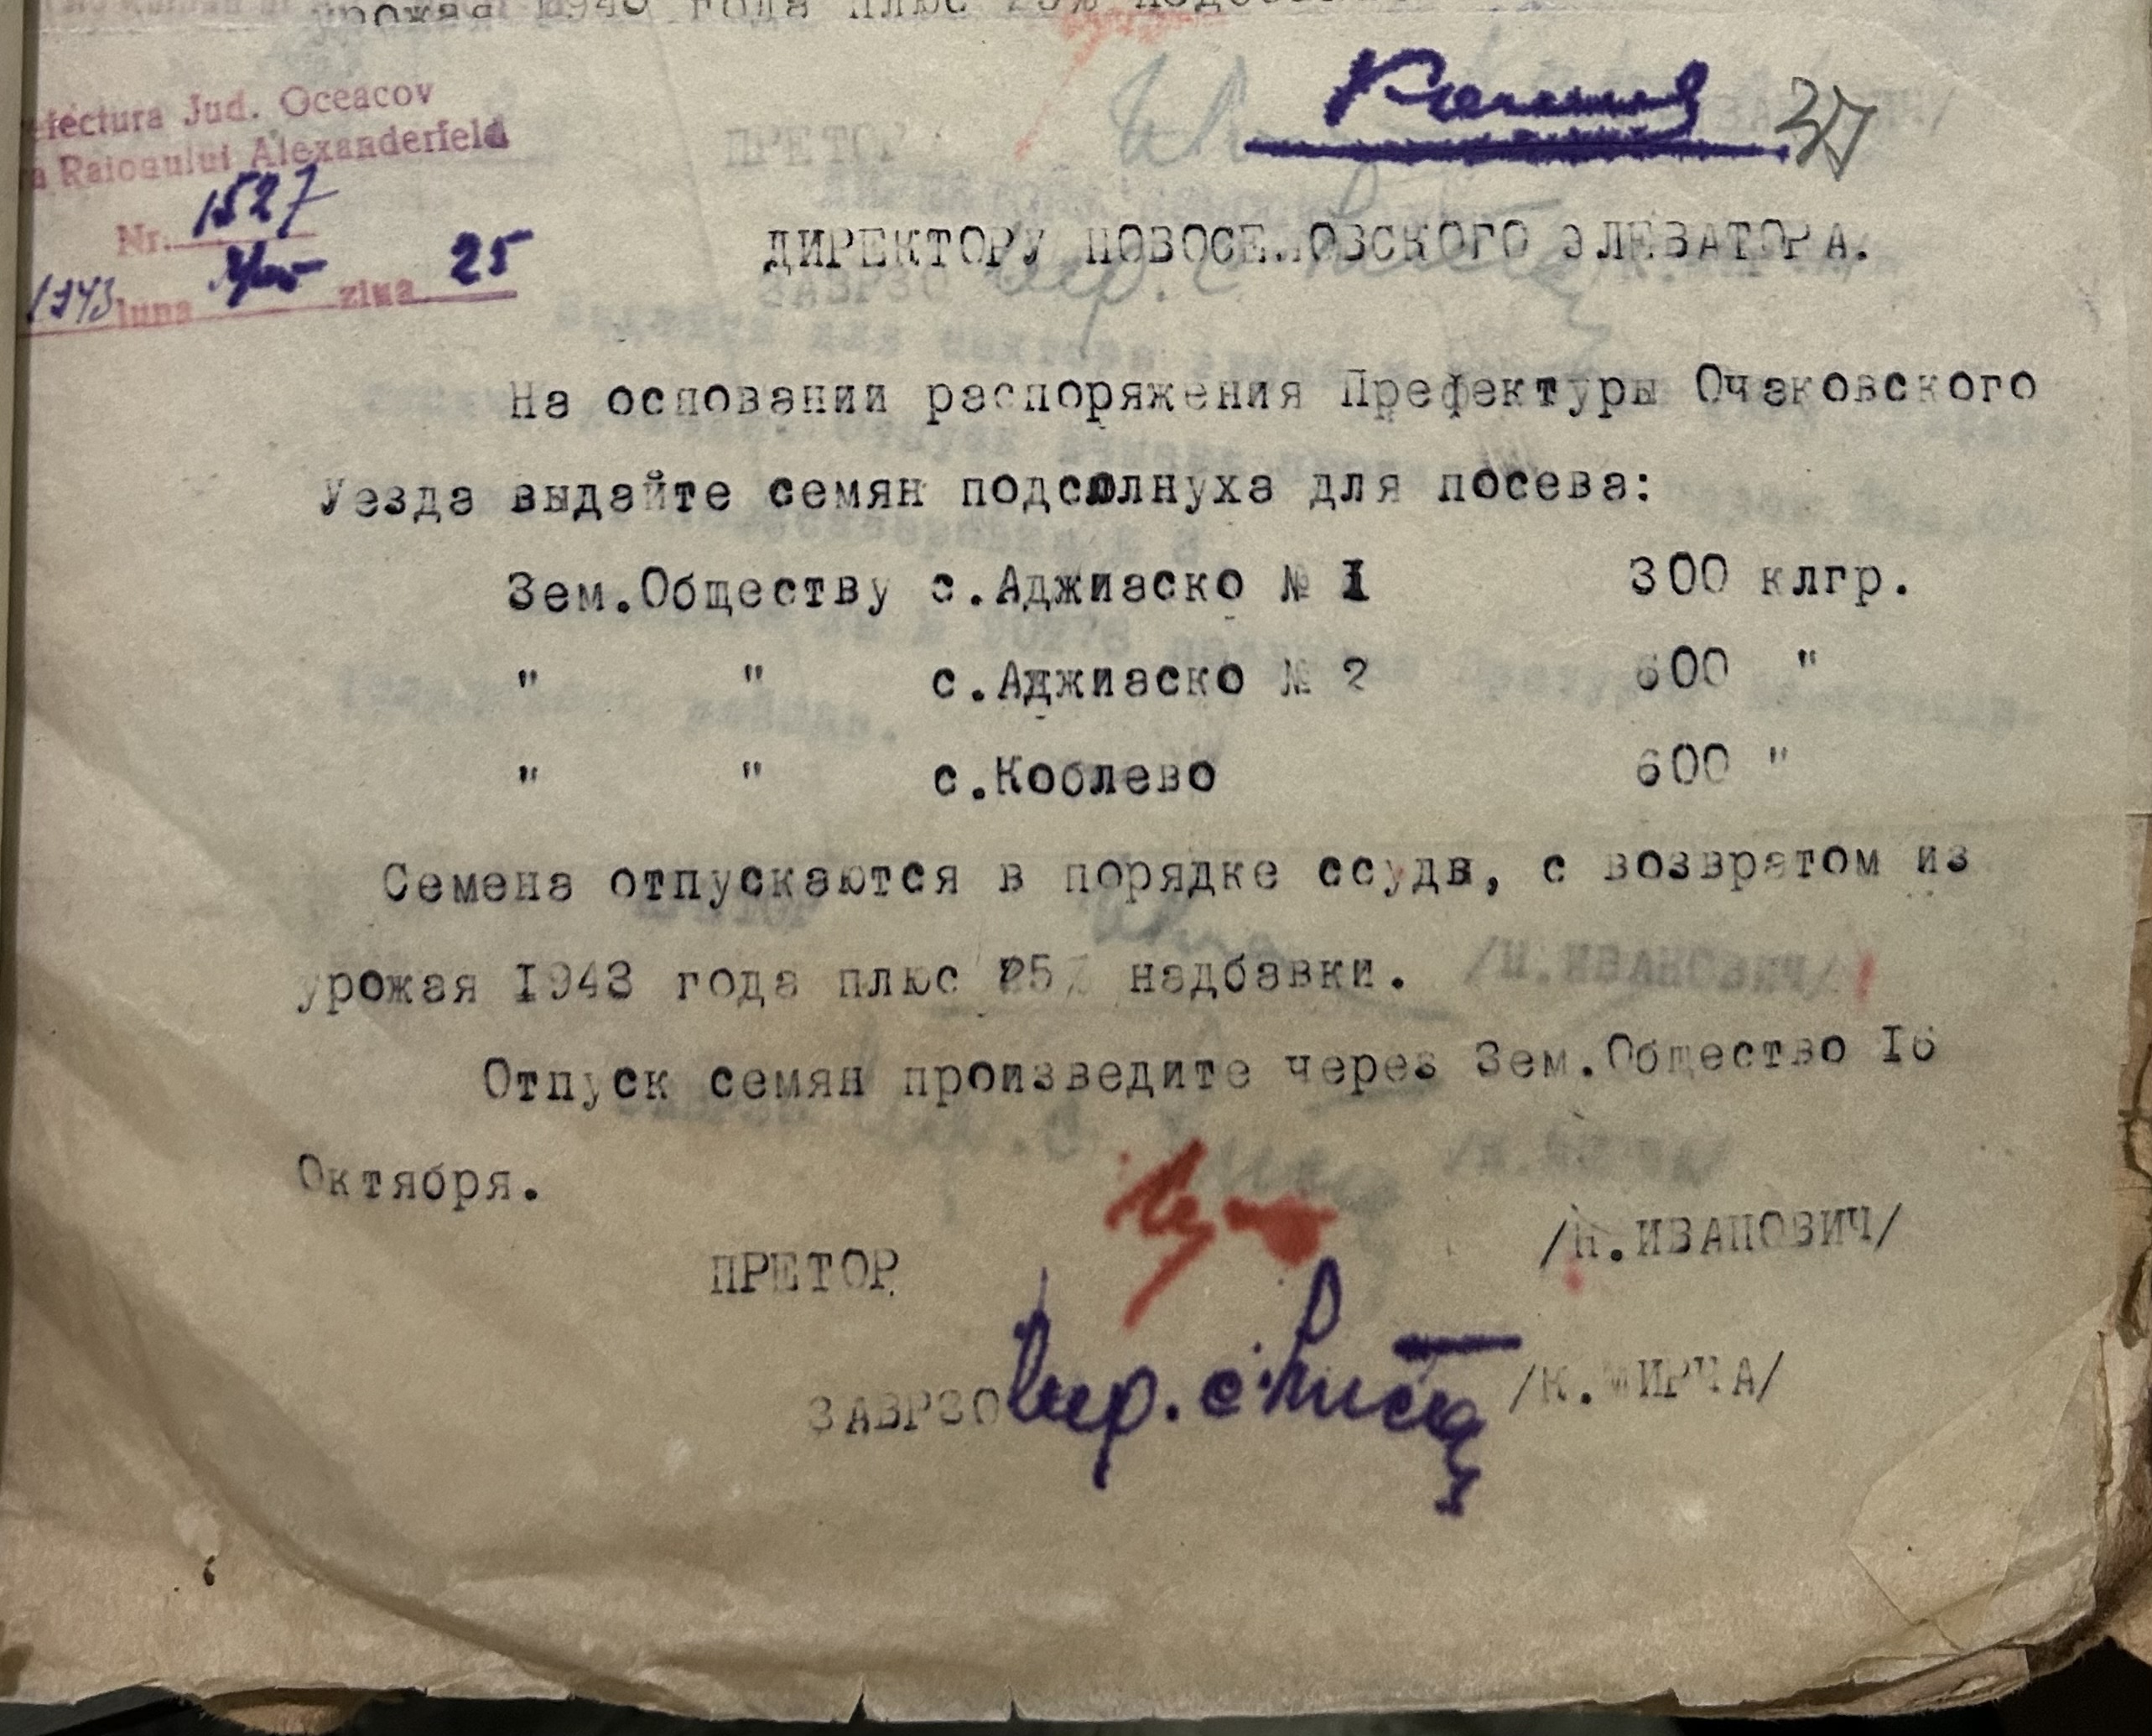 урожая 1943 года плюс 25%
efectura Jud. Oceacov
a Raionului Alexanderfeld
Nr. 1527
1943 luna Mai ziua 25
37
ДИРЕКТОРУ НОВОСЕЛОВСКОГО ЭЛЕВАТОРА.
На основании распоряжения Префектуры Очаковского
Уезда выдайте семян подсолнуха для посева:
Зем.Обществу с.Аджиаско № I 300 клгр.
" " с.Аджиаско № 2 600 "
" " с.Коблево 600 "
Семена отпускаются в порядке ссуды, с возвратом из
урожая I943 года плюс 25% надбавки.
Отпуск семян произведите через Зем.Общество I6
Октября.
ПРЕТОР /Н.ИВАНОВИЧ/
ЗАВРЗО /К.МИРЧА/